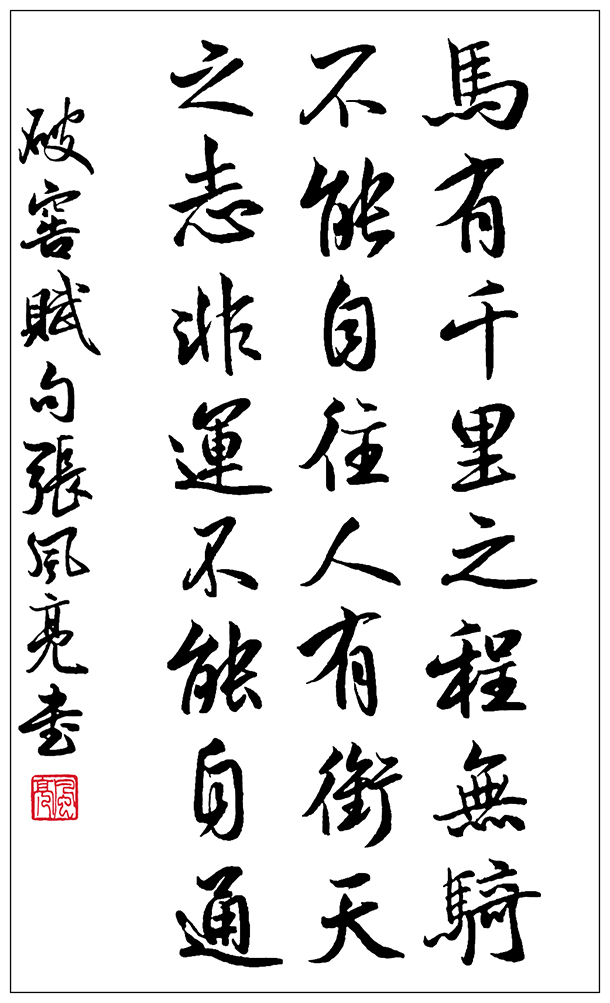 馬有千里之程無騎
不能自往人有衝天
之志非運不能自通
破窰賦句張風亮書
風亮